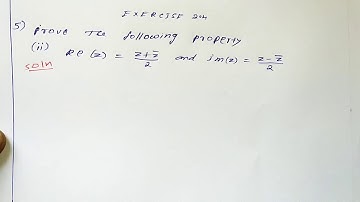 EXERCISE 2.4
5) Prove The following property
(ii) Re(z) = z+z̅/2 and im(z) = z-z̅/2
Soln